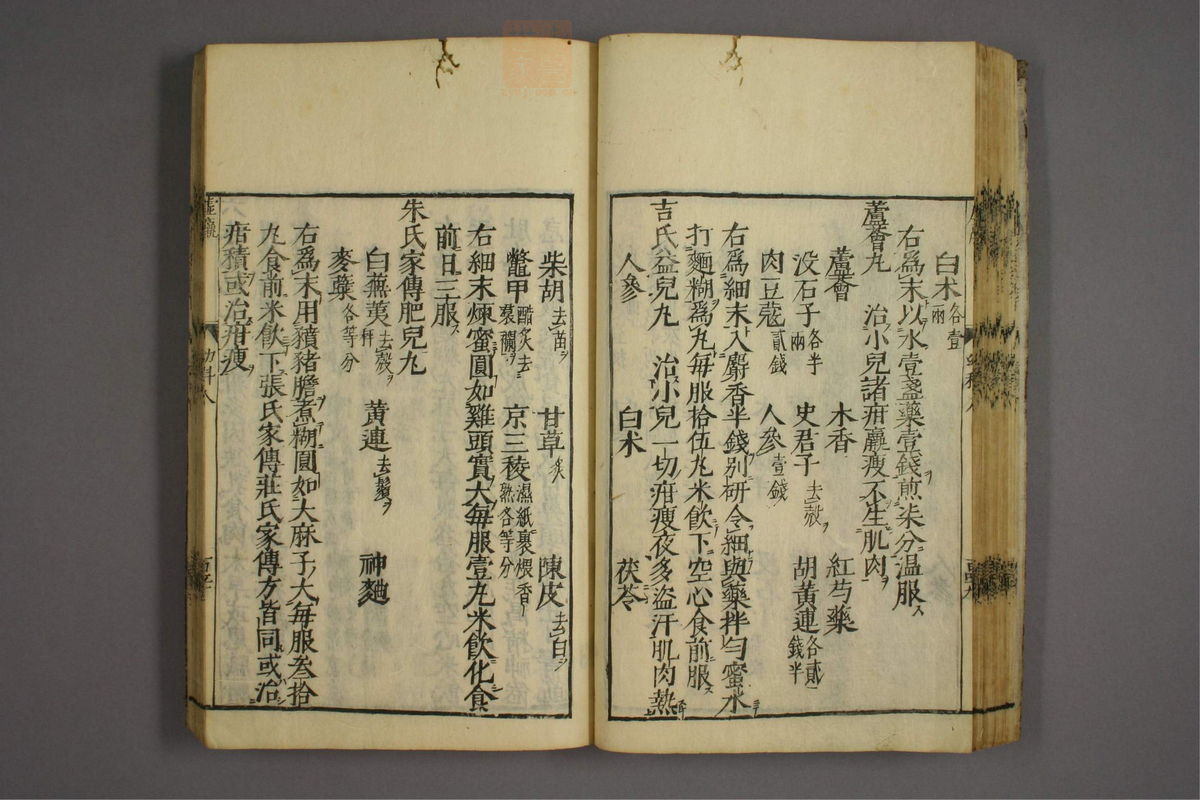 白朮各壹兩
右爲末以水壹盞藥壹錢煎柒分温服
蘆薈丸 治小兒諸疳羸瘦不生肌肉
蘆薈 木香 紅芍藥
没石子各半兩 史君子去殼 胡黄連各貳錢半
肉豆蔻貳錢 人參壹錢
右爲細末入麝香半錢别研令細與藥拌匀蜜水
打麵糊爲丸每服拾伍丸米飲下空心食前服
吉氏益兒丸 治小兒一切疳瘦夜多盗汗肌肉熱
人參 白朮 茯苓
柴胡去苗 甘草炙 陳皮去白
鼈甲醋炙去裙襴 京三稜濕紙裹煨香熟各等分
右細末煉蜜圓如雞頭實大每服壹丸米飲化食
前日三服
朱氏家傳肥兒丸
白蕪荑去殼秤 黄連去鬚 神麯
麥蘗各等分
右爲末用㹠猪膽煮糊圓如大麻子大每服叁拾
丸食前米飲下張氏家傳莊氏家傳方皆同或治
疳積或治疳瘦